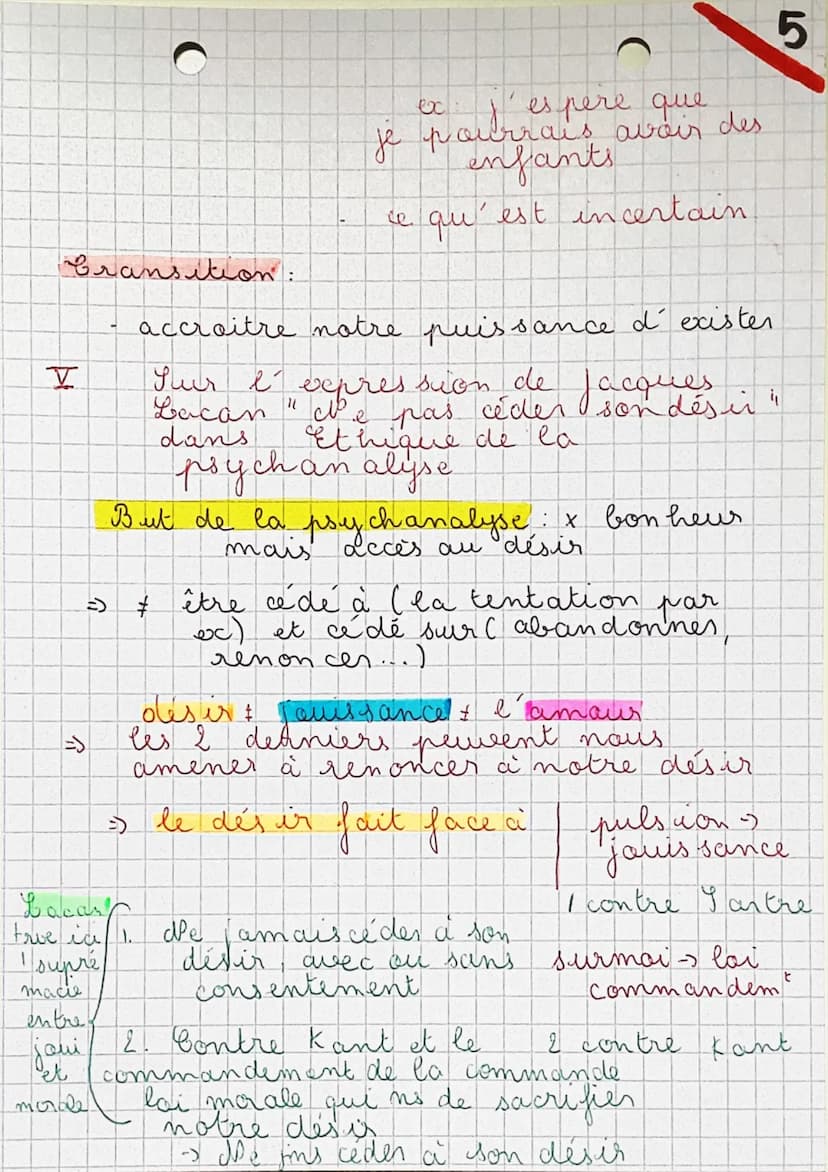 5
ex : j'espère que
je pourrais avoir des
enfants
- ce qu'est incertain
Transition :
- accroitre notre puissance d'exister
V Sur l'expression de Jacques
Lacan "Ne pas céder son désir"
dans Ethique de la
psychanalyse
But de la psychanalyse : x bonheur
mais accès au désir
=> ≠ être cédé à (la tentation par
ex) et cédé sur (abandonner,
renoncer...)
désir ≠ jouissance ≠ l'amour
=> les 2 derniers peuvent nous
amener à renoncer à notre désir
=> le désir fait face à
pulsion ->
jouissance
1 contre Sartre
surmoi -> loi
commandemt
2 contre Kant
Lacan
trve ici
1 supré
macie
entre
joui
et
morale
1. Ne jamais céder à son
désir, avec ou sans
consentement
2. Contre Kant et le
commandement de la commande
loi morale qui ns de sacrifier
notre désir
-> Ne jms céder à son désir